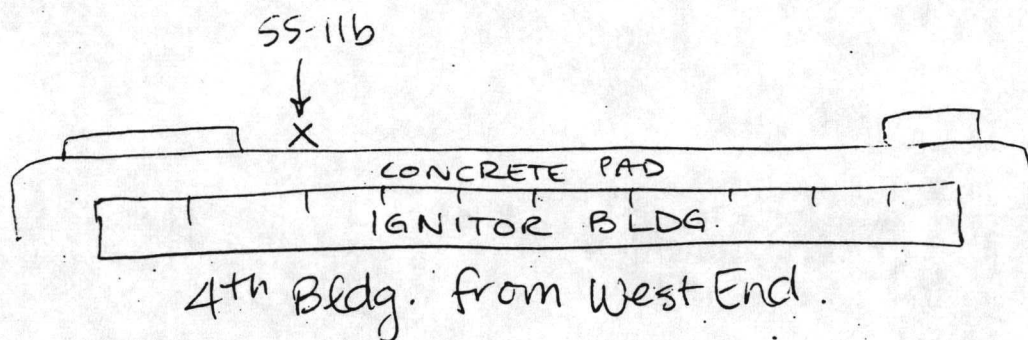 SS-11b
X
CONCRETE PAD
IGNITOR BLDG.
4th Bldg. from West End.